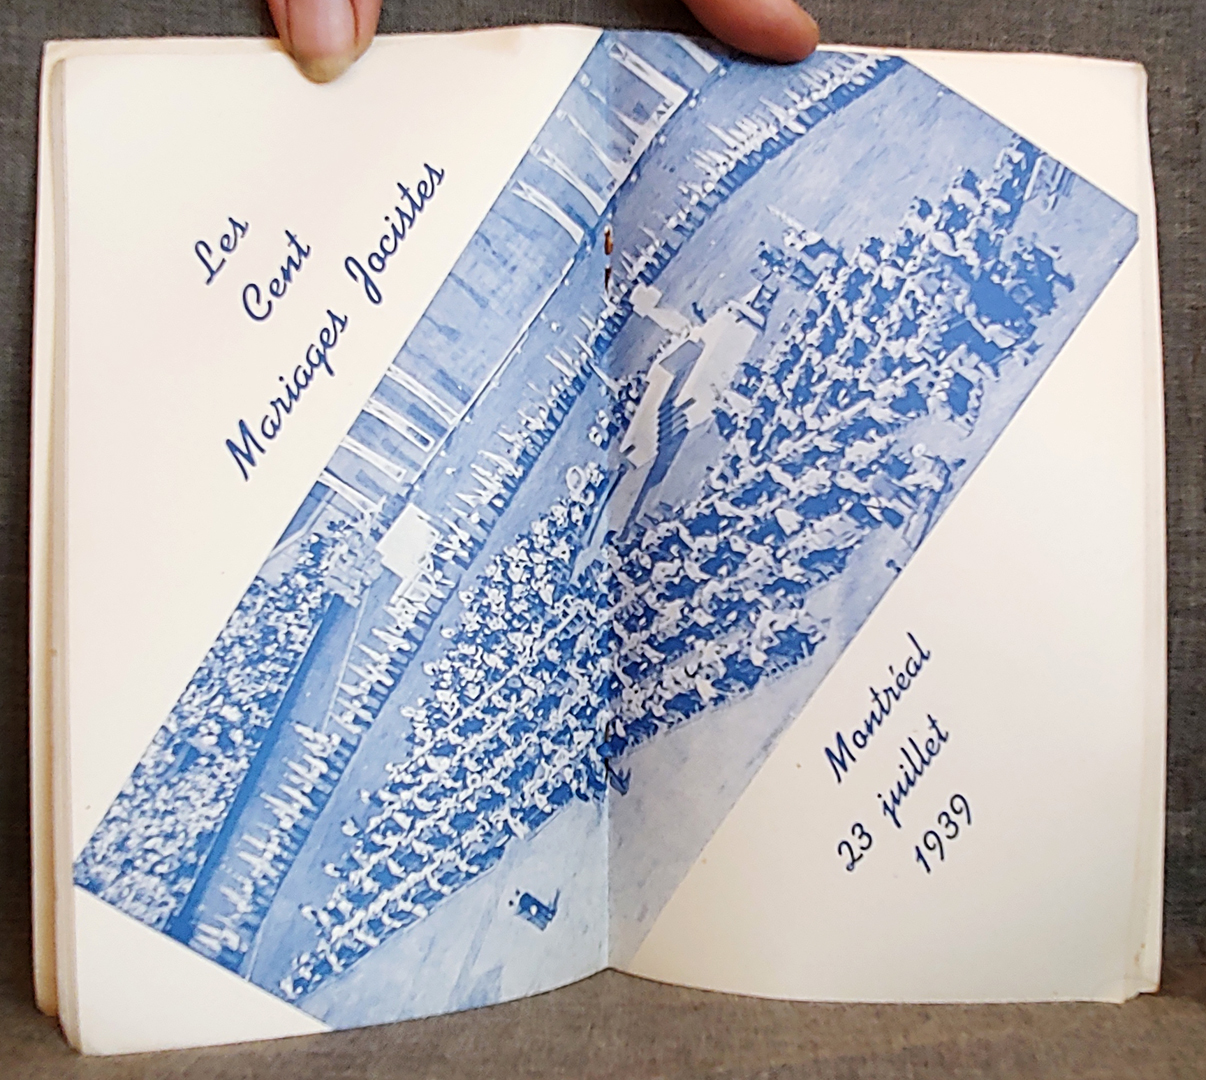 Les
Cent
Mariages Jocistes
Montréal
23 juillet
1939